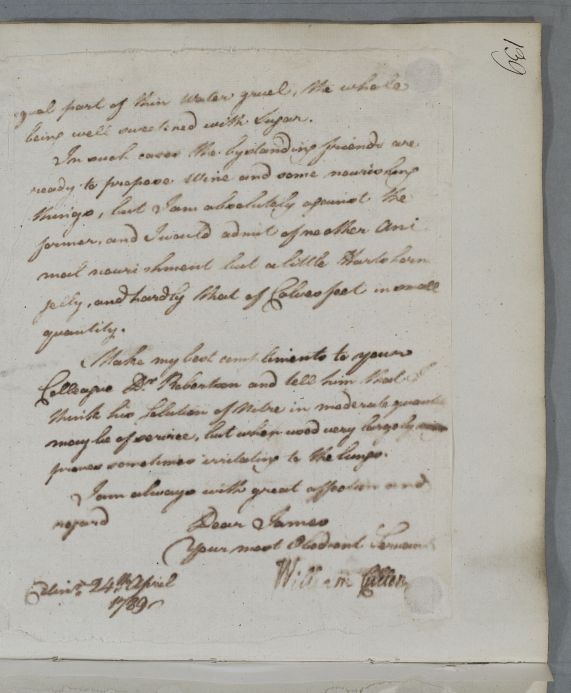 139
equal part of thin Water gruel, the whole
being well sweetned with Sugar.
In such cases the bystanding friends are
ready to propose Wine and some nourishing
things, but I am absolutely against the
former, and I would admit of no other Ani
mal nourishment but a little Hartshorn
jelly, and hardly that of Calves feet in small
quantity.
Make my best compliments to your
Colleague Dr. Robertson and tell him that I
think his Solution of Nitre in moderate quant
may be of service, but when used very largely
proves sometimes irritating to the lungs.
I am always with great affection and
regard
Dear James
Your most Obedient Servant
William Cullen
Edinr. 24th April
1789